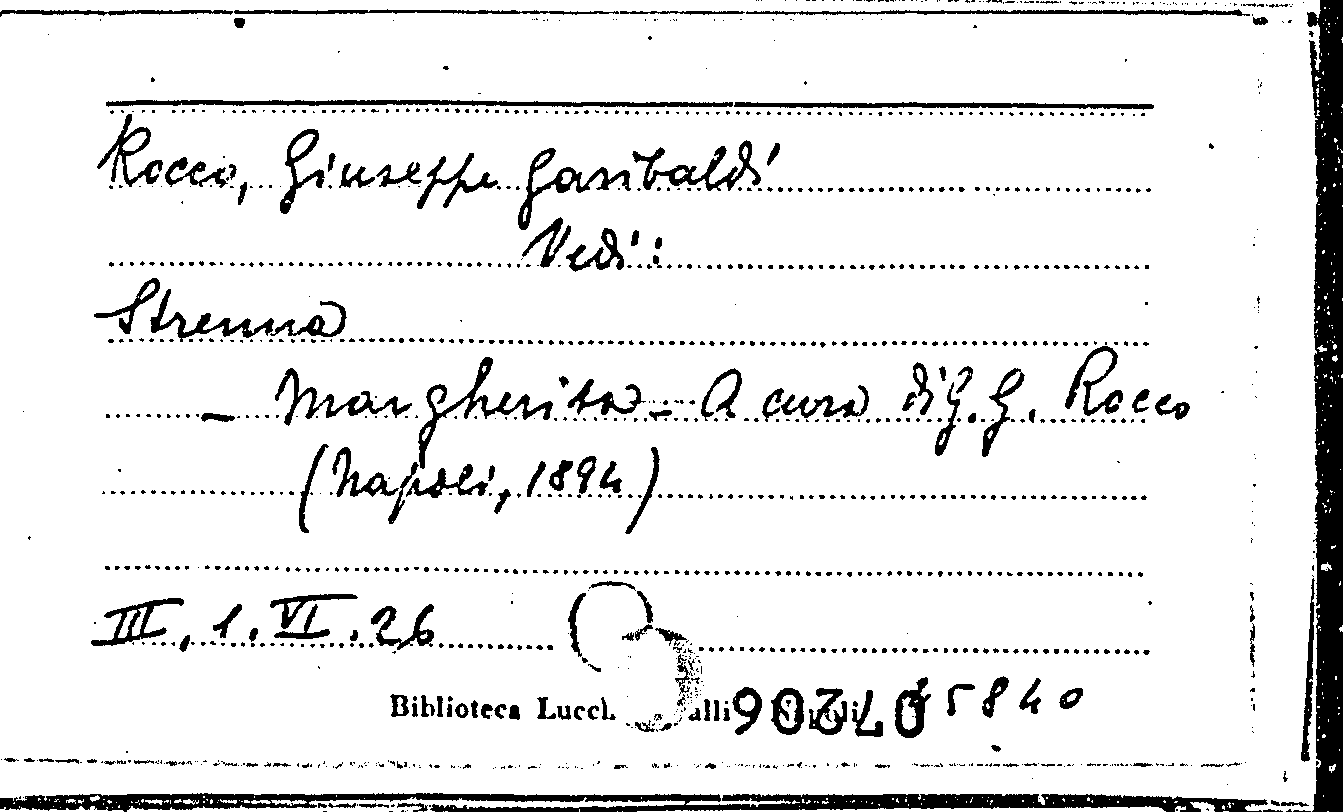 Rocco, Giuseppe Garibaldi
Vedi:
Strenna
- Margherita - A cura di G. G. Rocco
(Napoli, 1894)
III, 1. VI. 26
Biblioteca Lucch
072206
5840